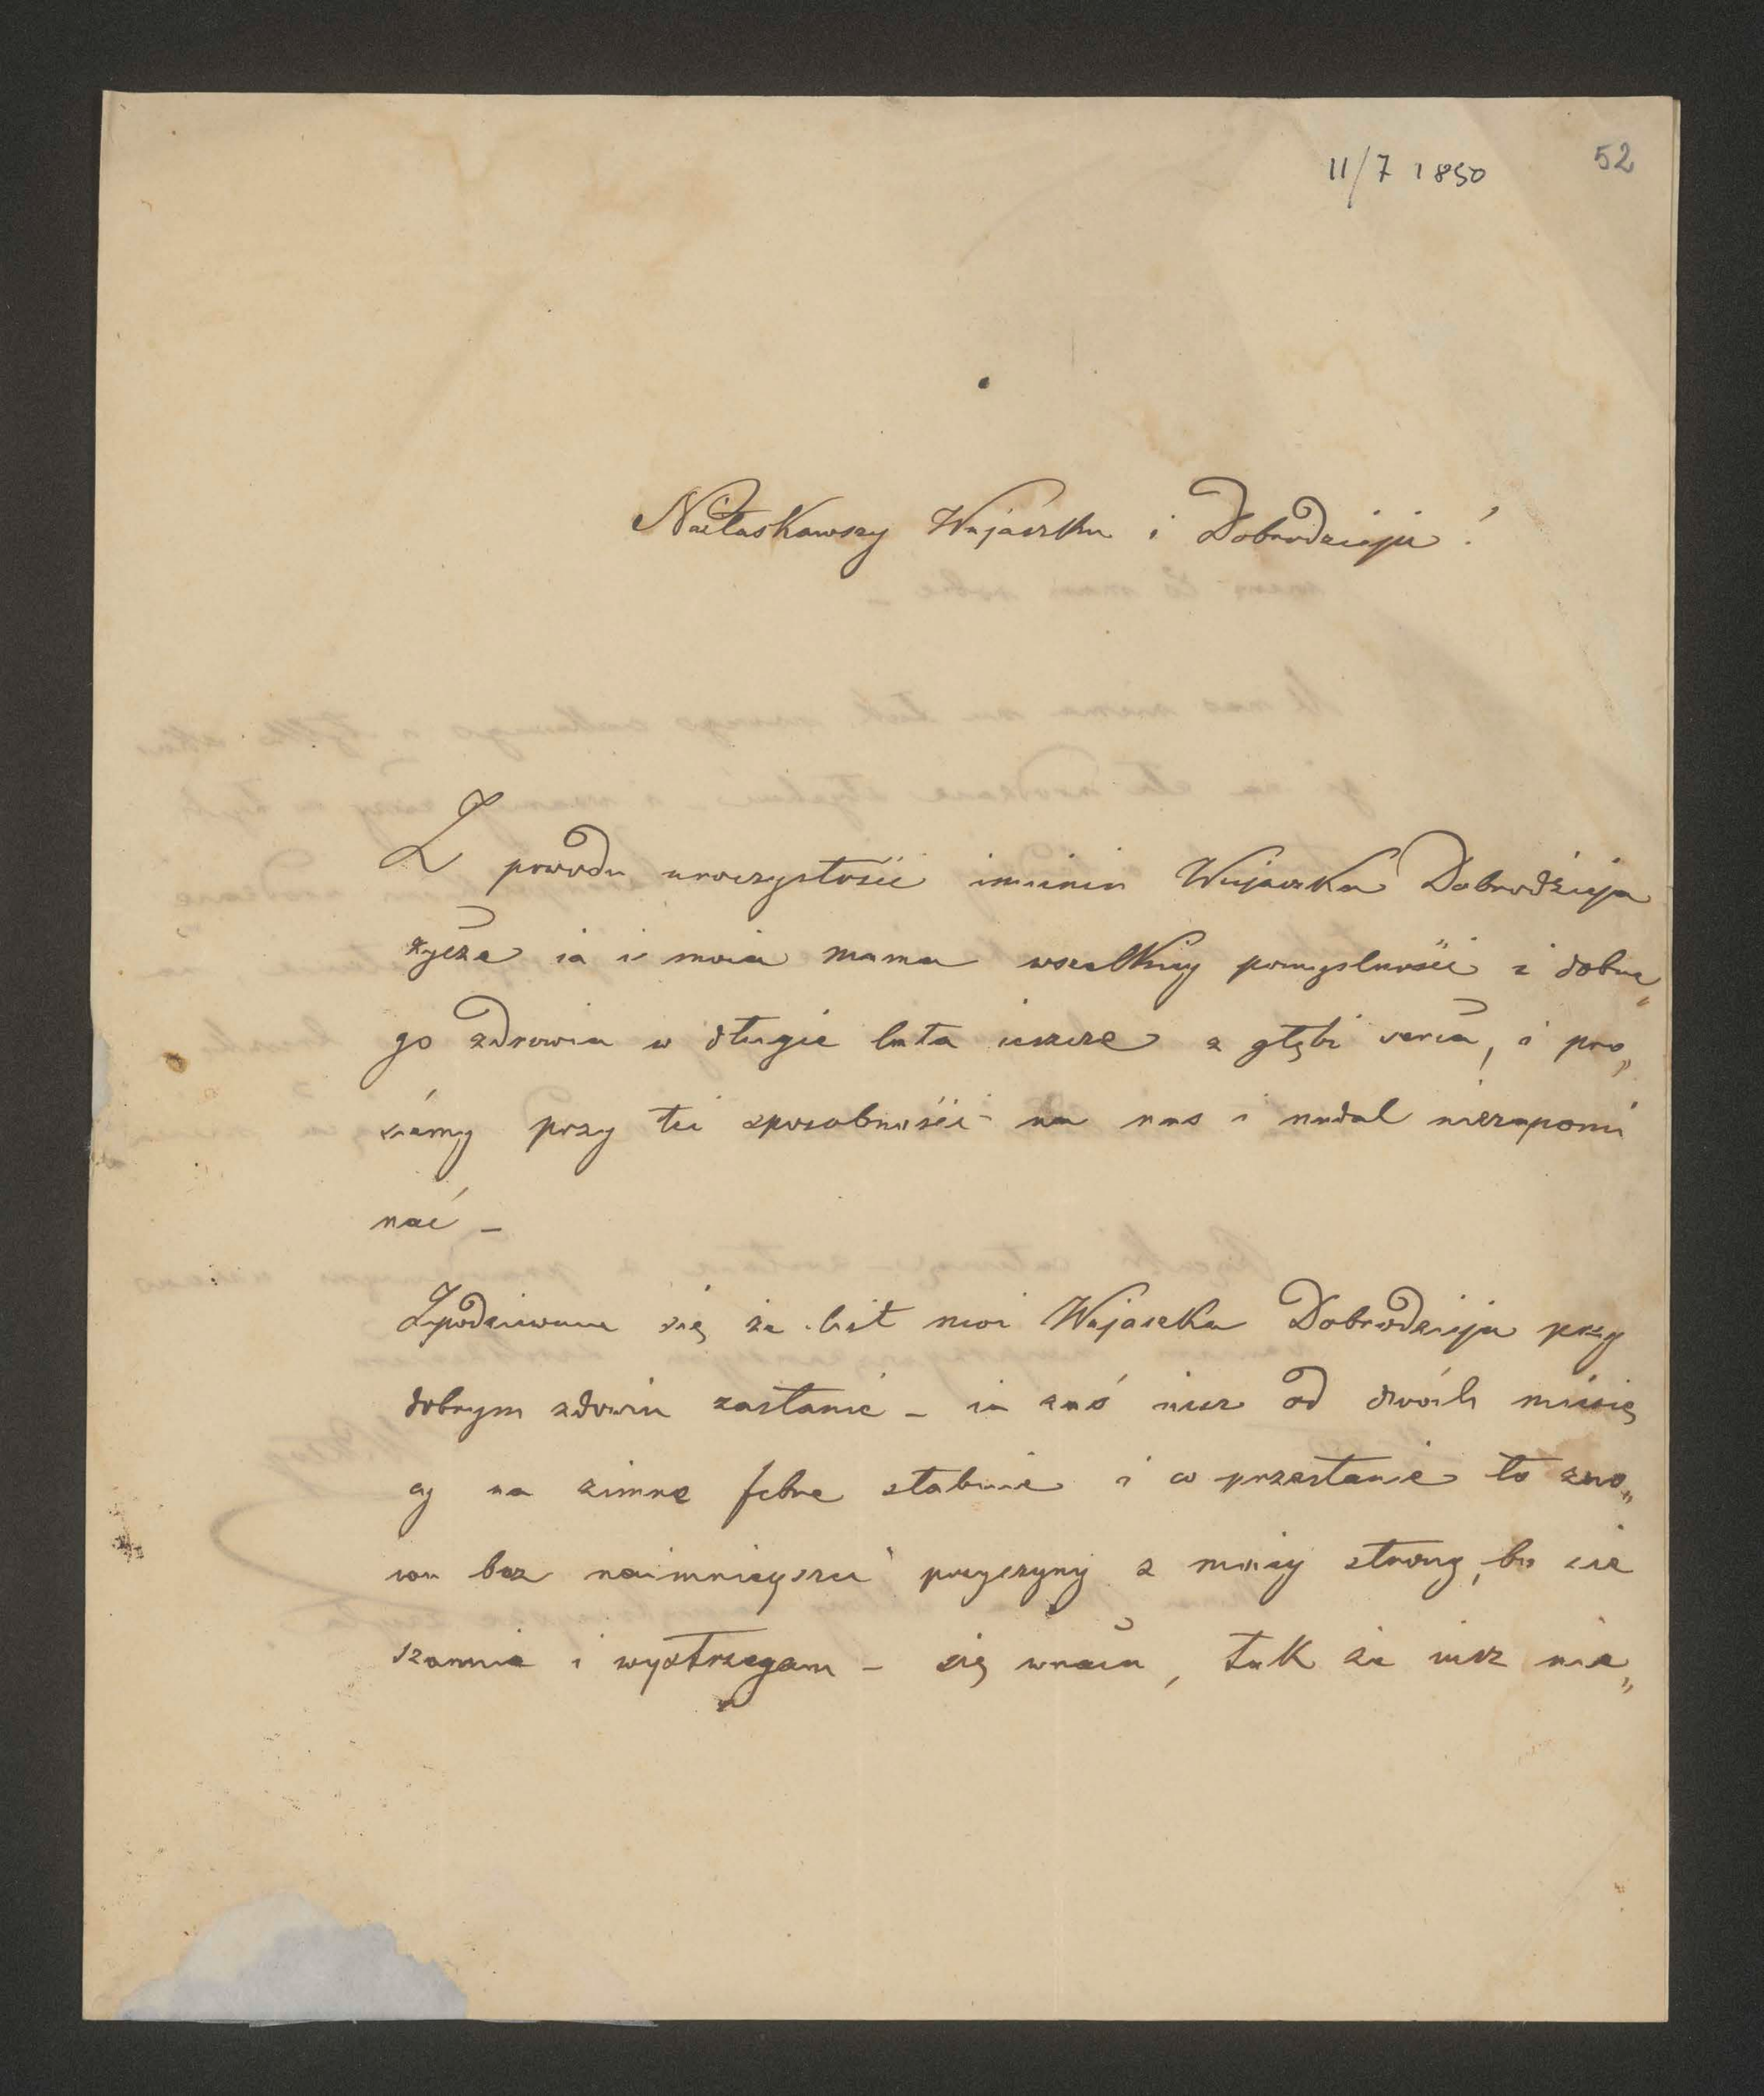 11/7 1850 52
Naiłaskawszy Wujaszku i Dobrodzieju!
Z powodu uroczystości imienin Wujaszka Dobrodzieja
życzę ia i moia mama wszelkiey pomyslności i dobre„
go zdrowia w długie lata ieszcze z głębi serca, i pro„
siemy przy tei sposobności na nas i nadal niezapomi
nać –
Spodziewam się że list moi Wujaszka Dobrodzieja przy
dobrym zdrowiu zastanie – ia zaś iusz od dwóch miesię
cy na zimne febre słabuie i co przestanie to zno„
wu bez naimnieyszei przyczyny z moiey strony, bo sie
szannuie i wystrzegam – się tak że iusz nie„